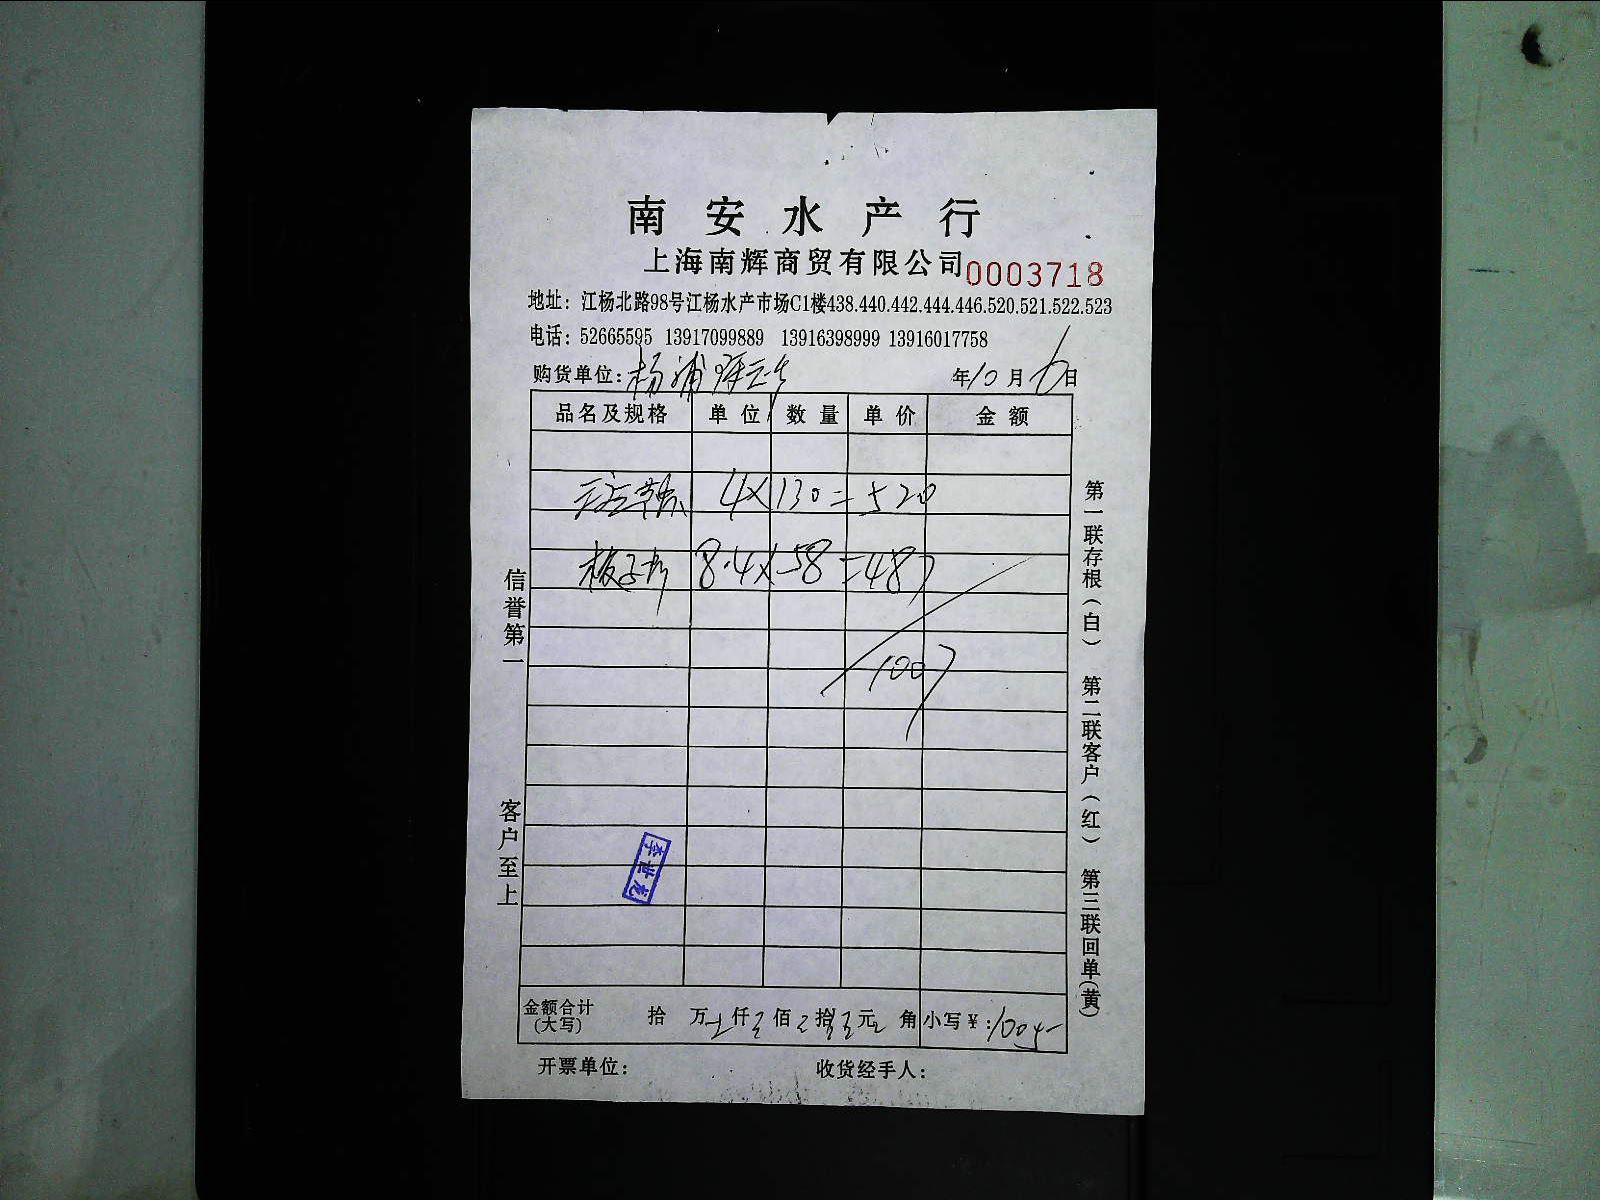 南安水产行
上海南辉商贸有限公司 0003718
地址：江杨北路98号江杨水产市场C1楼438.440.442.444.446.520.521.522.523
电话：52665595 13917099889 13916398999 13916017758
购货单位：杨浦 年10月6日
品名及规格 单位 数量 单价 金额
4×130=520
板子 8.4×58=487
1007
信誉第一
客户至上
第一联存根(白) 第二联客户(红) 第三联回单(黄)
李世
金额合计 拾 万 仟 佰 拾 元 角 小写￥：1005-
(大写)
开票单位： 收货经手人：